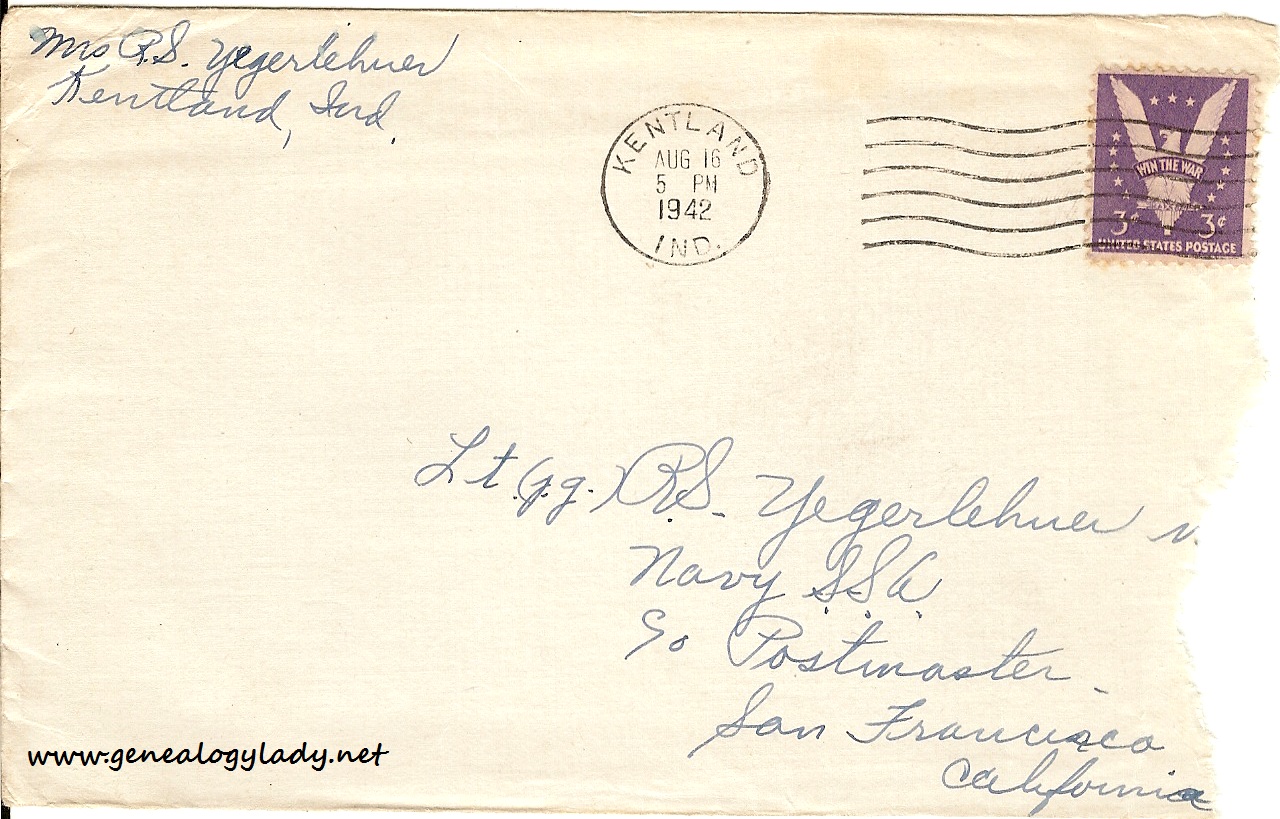 Mrs R.S. Yegerlehner
Kentland, Ind.
KENTLAND
AUG 16
5 PM
1942
IND.
WIN THE WAR
3¢ 3¢
UNITED STATES POSTAGE
Lt. (j.g.) R.S. Yegerlehner
Navy S.S.A.
c/o Postmaster
San Francisco
California
www.genealogylady.net